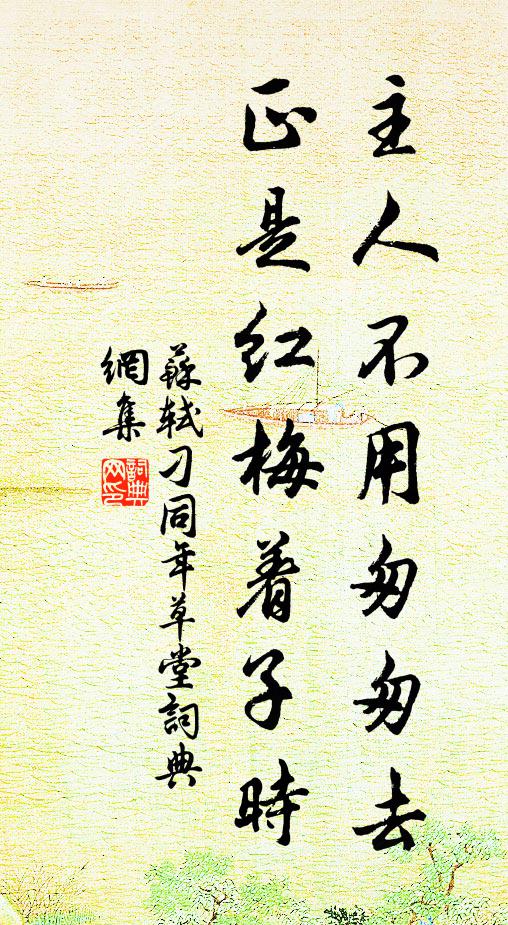 主人不用匆匆去
正是红梅着子時
蘇軾刁同年草堂詞典
網集
詞典網印